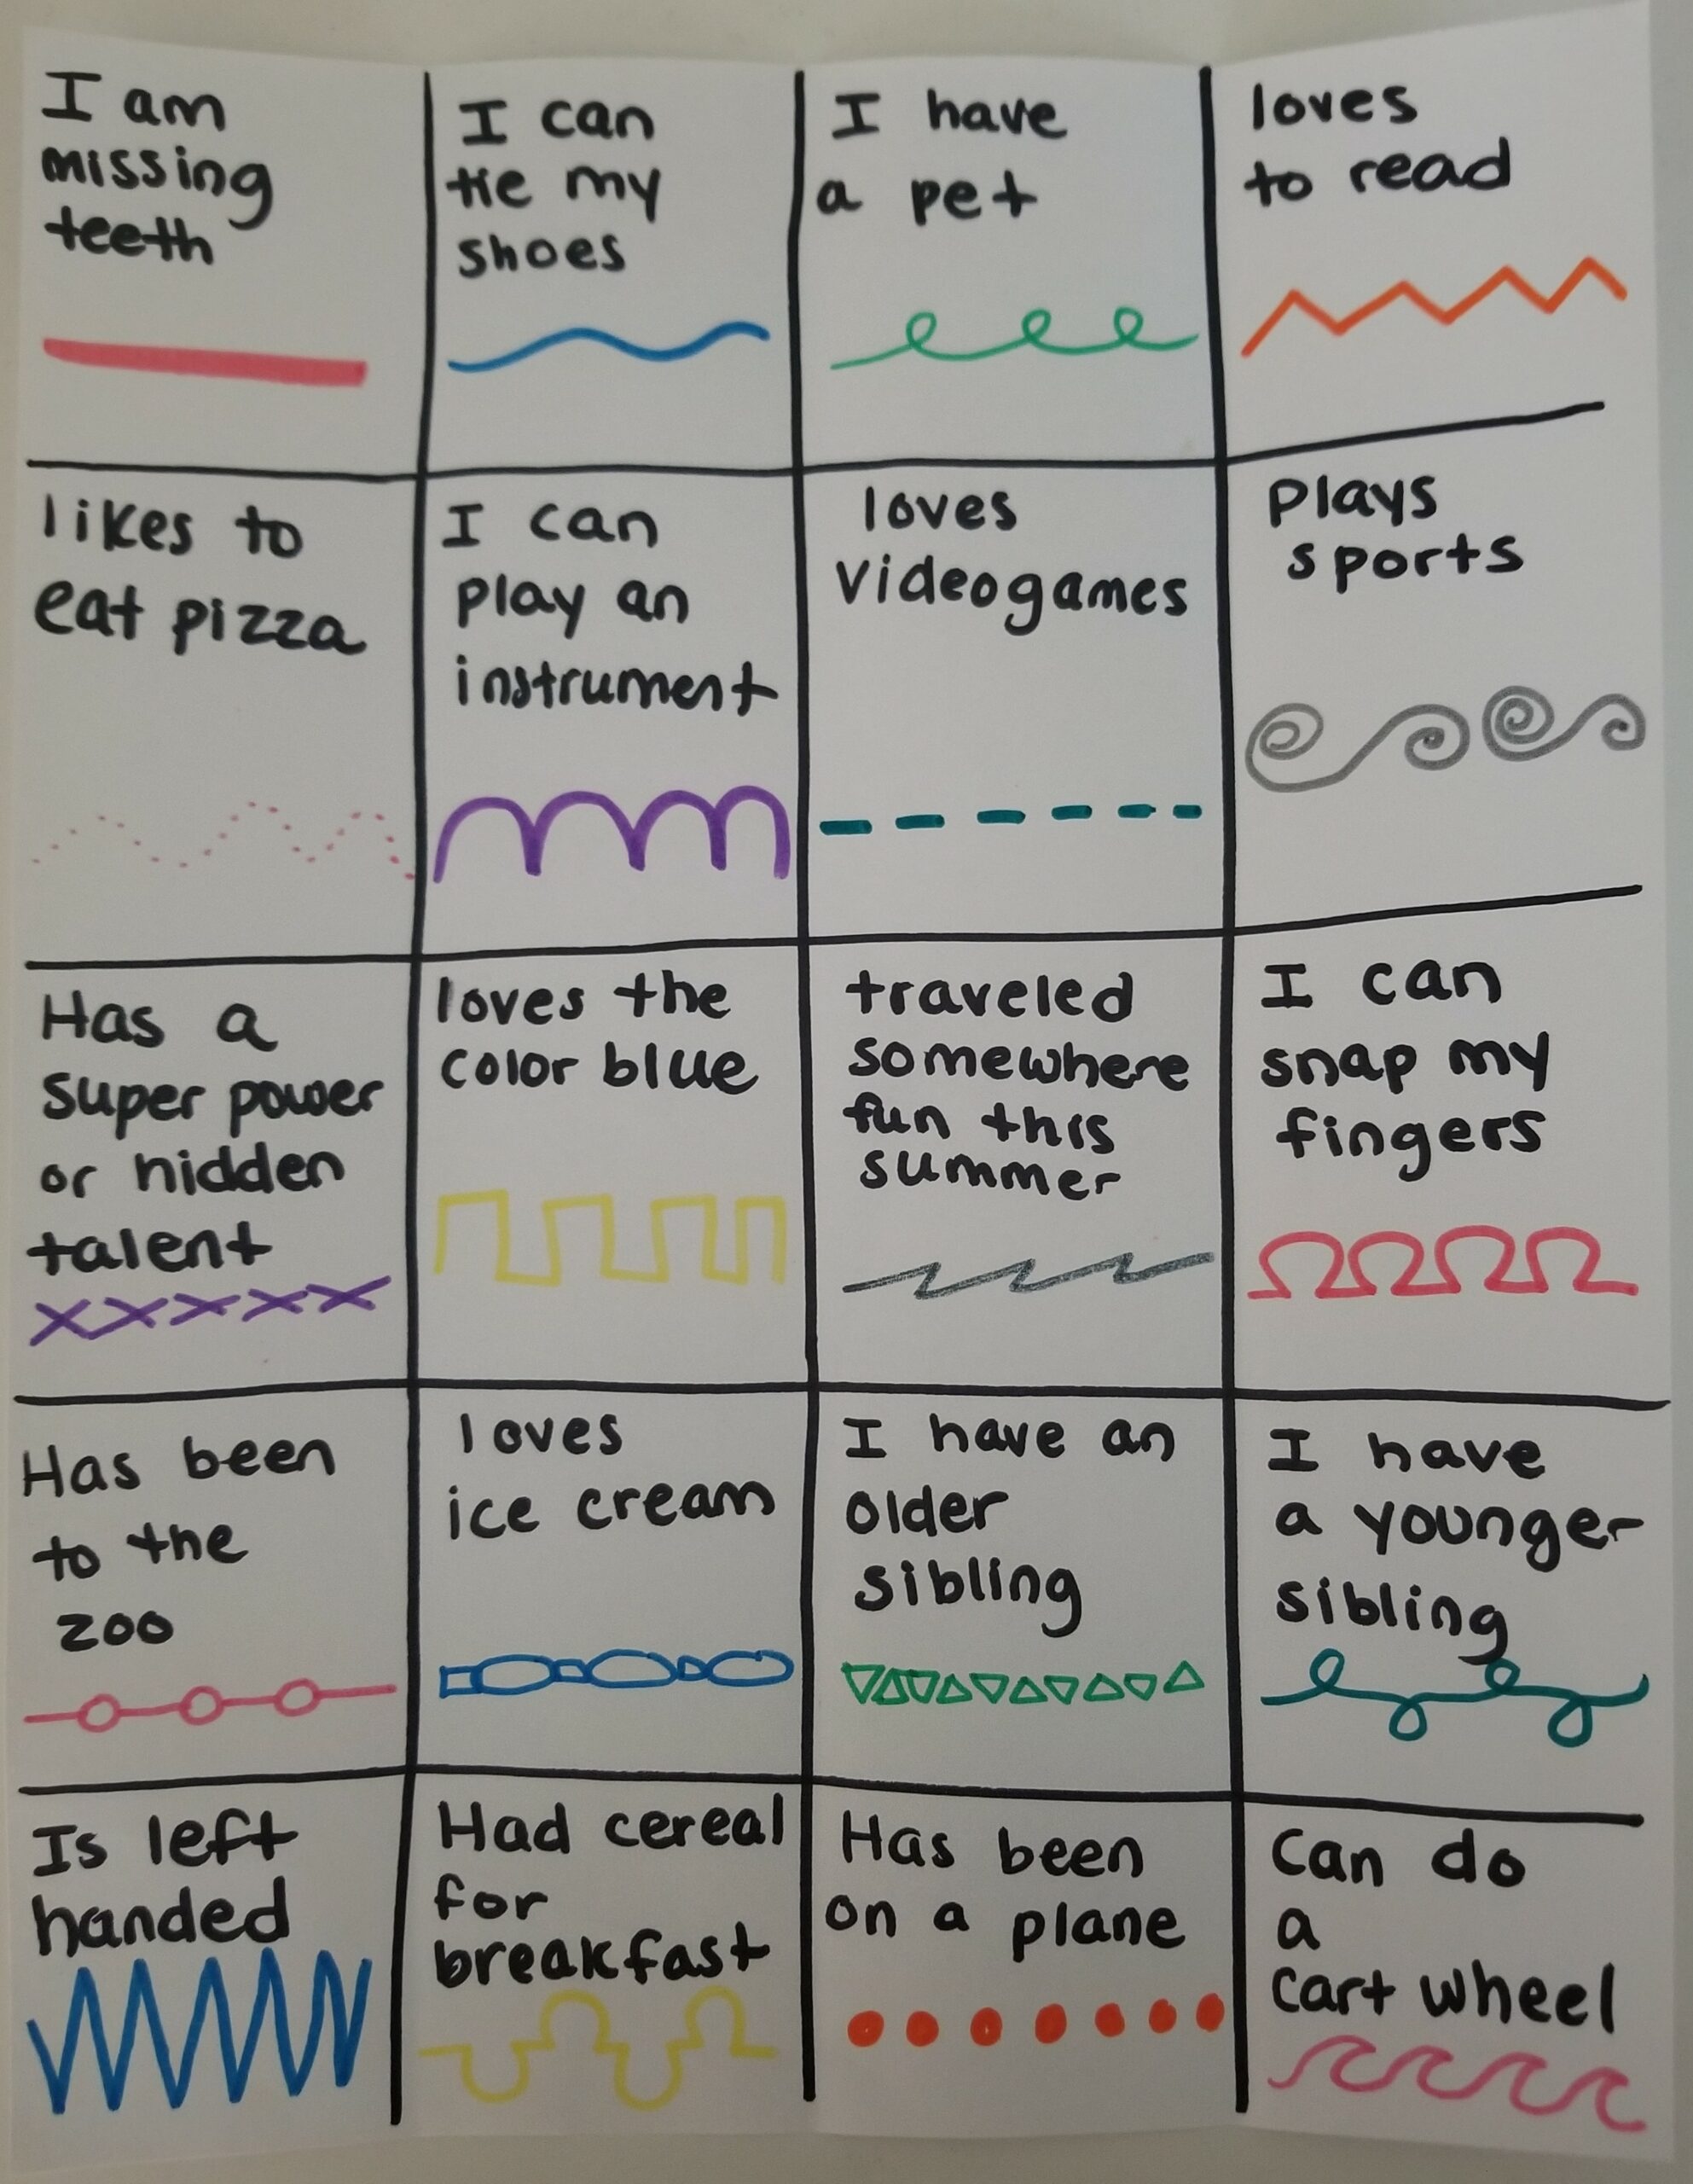 I am
missing
teeth
I can
tie my
shoes
I have
a pet
loves
to read
likes to
eat pizza
I can
play an
instrument
loves
videogames
plays
sports
Has a
super power
or hidden
talent
loves the
color blue
traveled
somewhere
fun this
summer
I can
snap my
fingers
Has been
to the
zoo
loves
ice cream
I have an
older
sibling
I have
a younger
sibling
Is left
handed
Had cereal
for
breakfast
Has been
on a plane
Can do
a
cart wheel